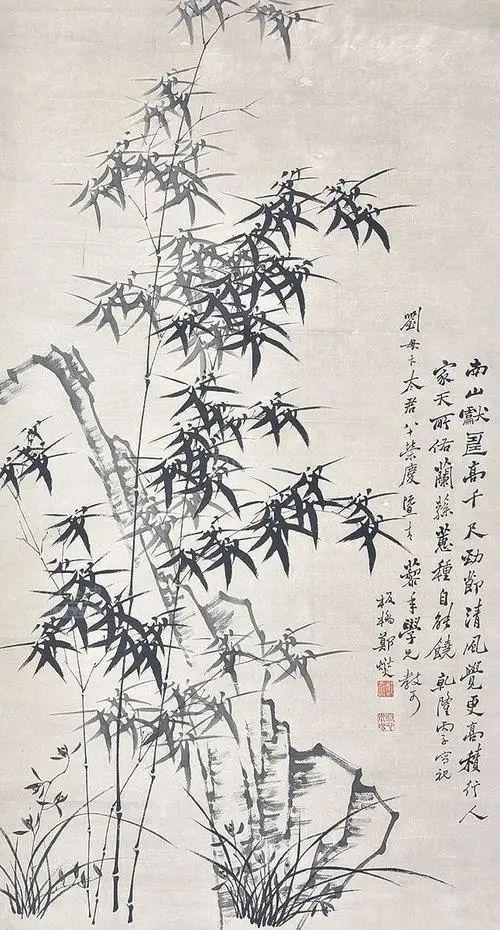 南山獻壽高千尺勁節清風覺更高積行人
家天所佑蘭蓀蕙種自能饒 乾隆丙子寫祝
劉母卞太君八十榮慶 並
藜章學兄 教可
板橋鄭燮